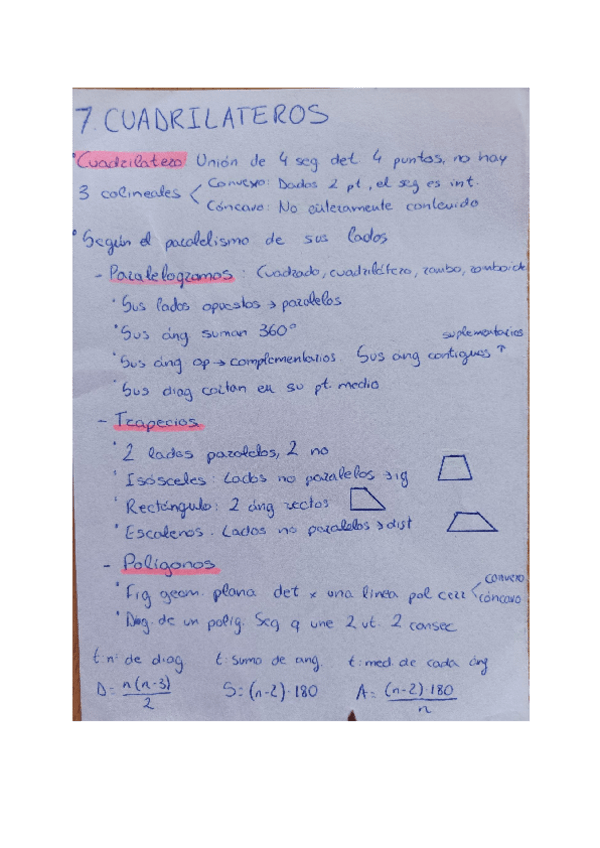 7. CUADRILATEROS
• Cuadrilatero Unión de 4 seg det 4 puntos, no hay
3 colineales < Convexo: Dados 2 pt, el seg es int.
Cóncavo: No enteramente contenido
• Según el paralelismo de sus lados
- Paralelogramos : Cuadrado, cuadrilátero, rombo, romboide
• Sus lados opuestos → paralelos
• Sus áng suman 360°
• Sus áng op → complementarios. Sus áng contiguos ↑ suplementarios
• Sus diag cortan en su pt. medio
- Trapecios
• 2 lados paralelos, 2 no
• Isósceles: Lados no paralelos → ig
• Rectángulo: 2 áng rectos
• Escalenos. Lados no paralelos → dist
- Polígonos
• Fig geom. plana det x una linea pol cerr < convexo
cóncavo
• Diag. de un polig. Seg q une 2 vt. 2 consec
t: nº de diag t: suma de ang. t: med. de cada áng
D = n(n-3)/2 S = (n-2)·180 A = (n-2)·180/n